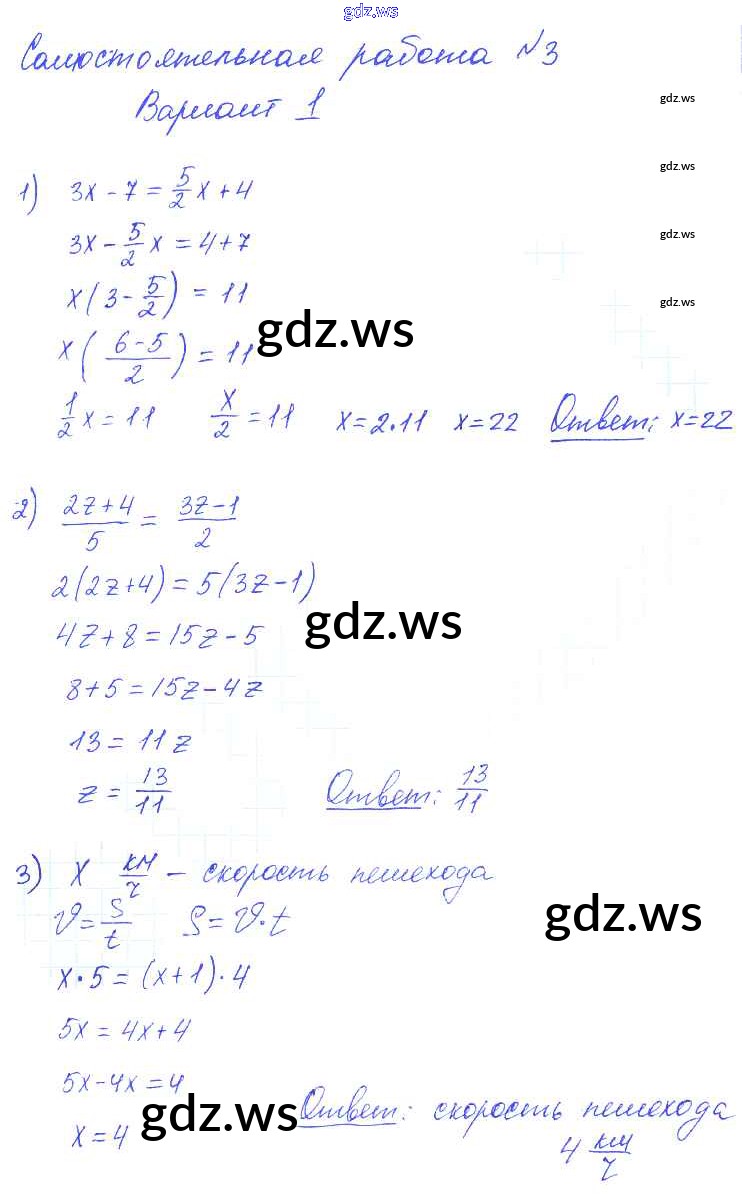 gdz.ws
Самостоятельная работа №3
Вариант 1
gdz.ws
gdz.ws
1) 3x - 7 = 5/2 x + 4
gdz.ws
3x - 5/2 x = 4 + 7
x(3 - 5/2) = 11
gdz.ws
gdz.ws
x((6 - 5)/2) = 11
1/2 x = 11 x/2 = 11 x = 2·11 x = 22 Ответ: x = 22
2) (2z + 4)/5 = (3z - 1)/2
2(2z + 4) = 5(3z - 1)
gdz.ws
4z + 8 = 15z - 5
8 + 5 = 15z - 4z
13 = 11z
z = 13/11 Ответ: 13/11
3) x км/ч - скорость пешехода
gdz.ws
v = S/t S = v·t
x·5 = (x + 1)·4
5x = 4x + 4
5x - 4x = 4
gdz.ws
x = 4 Ответ: скорость пешехода
4 км/ч